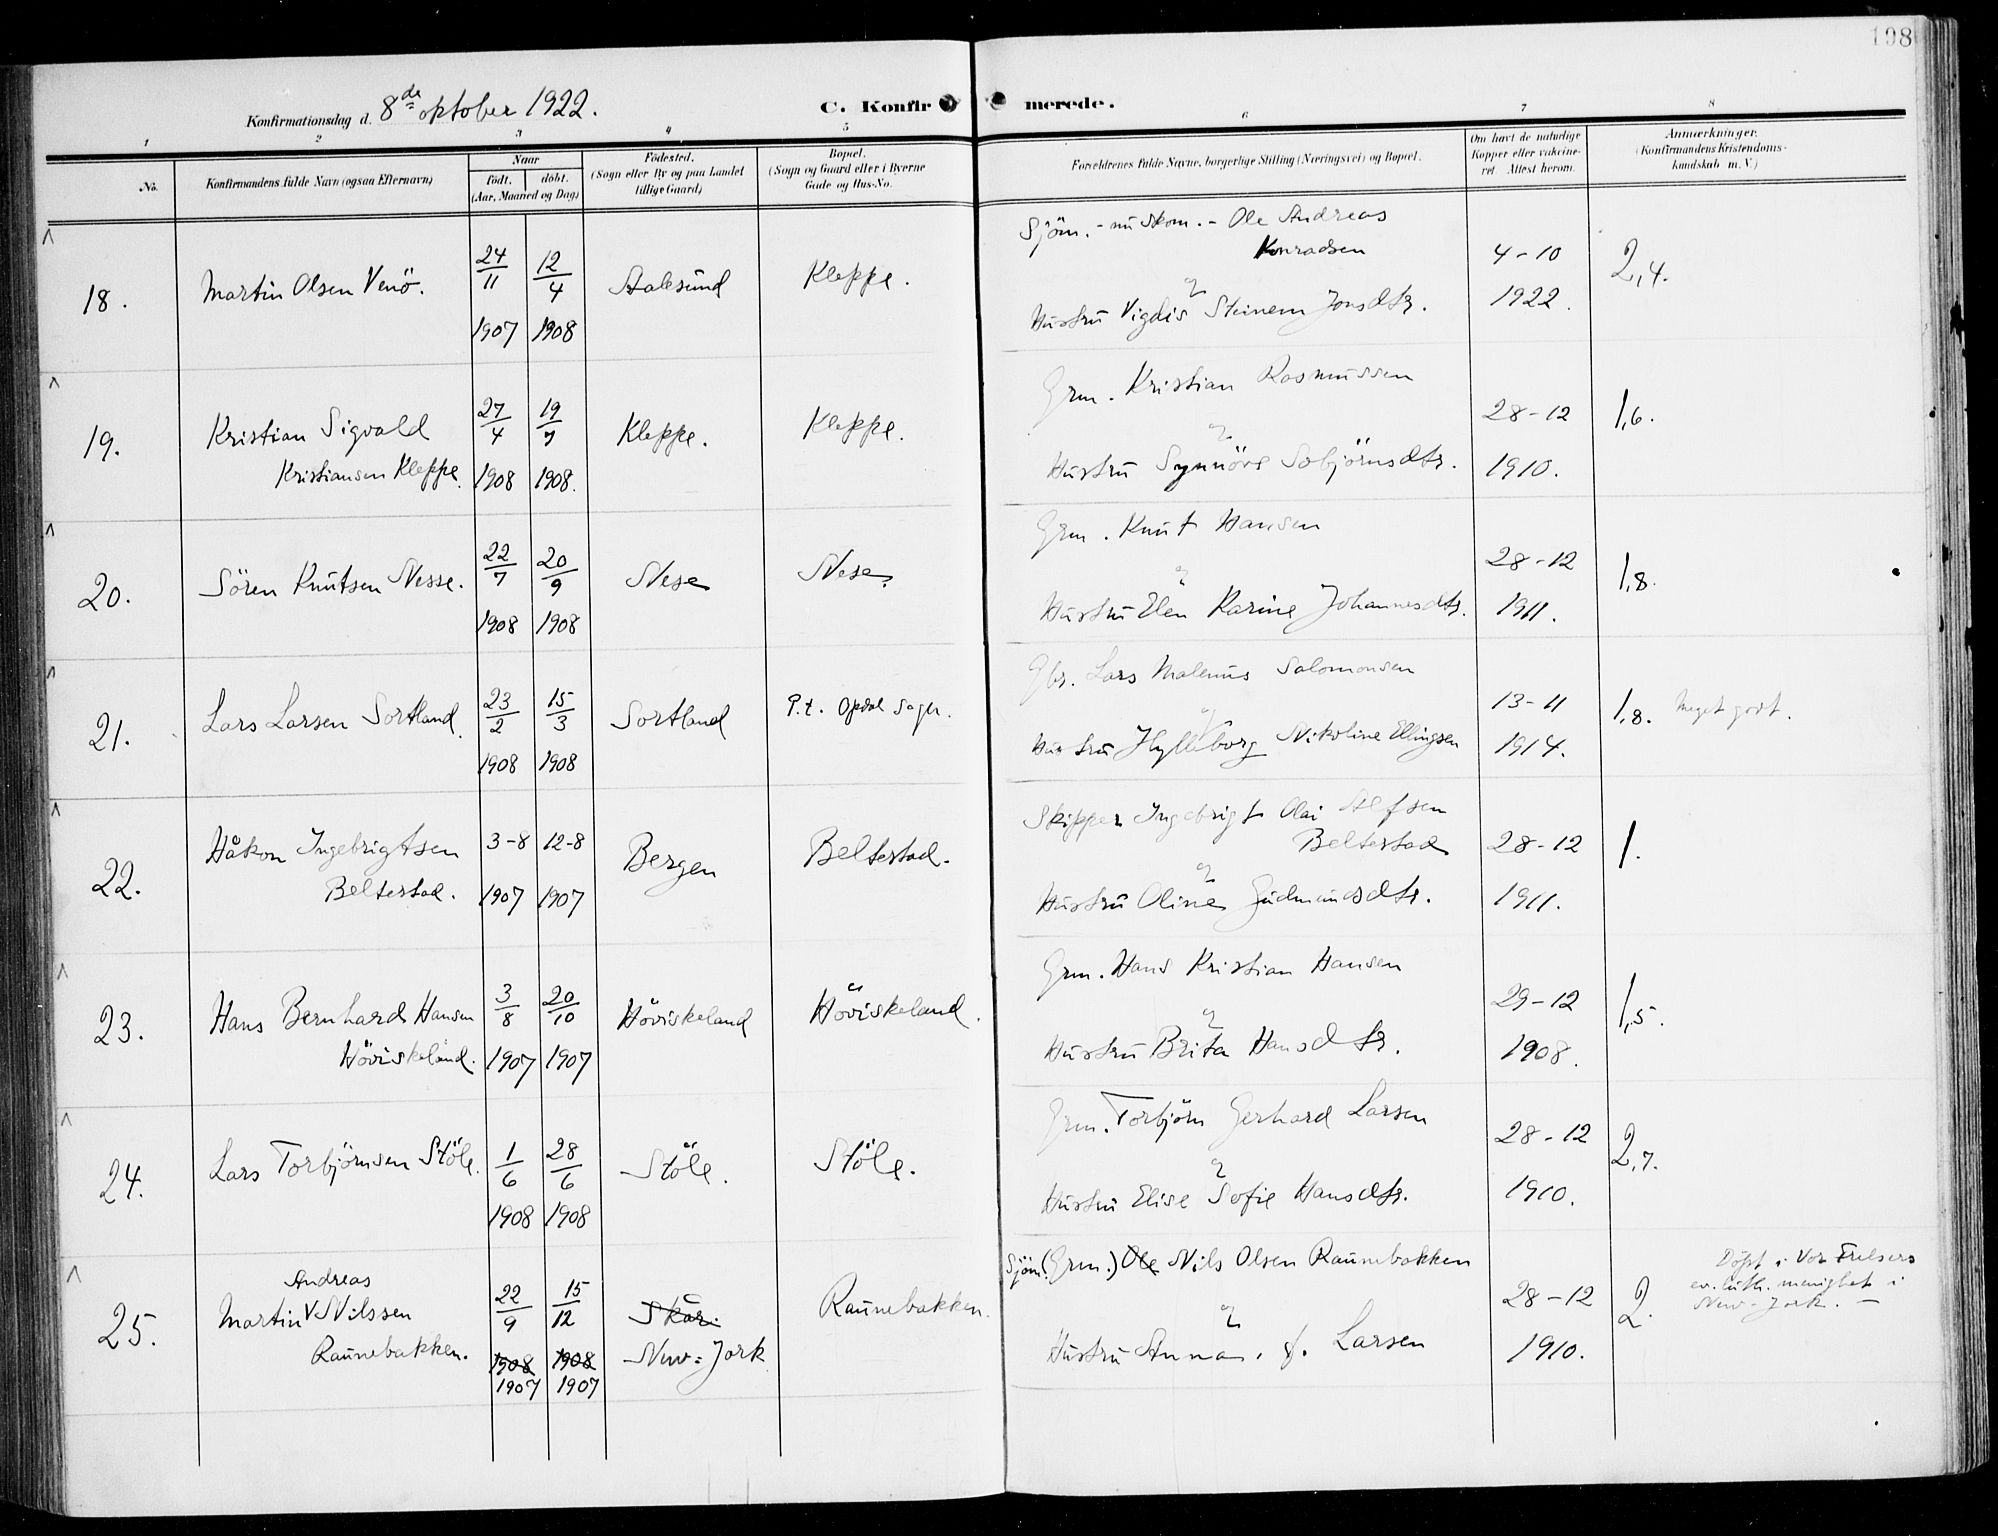 198
Konfirmationsdag d. 8de oktober 1922.
C. Konfirmerede.
1 2 3 4 5 6 7 8
No.
Konfirmandens fulde Navn (ogsaa Efternavn)
Naar
født. døbt.
(Aar, Maaned og Dag)
Fødested.
(Sogn eller By og paa Landet
tillige Gaard)
Bopæl.
(Sogn og Gaard eller i Byerne
Gade og Hus-No.
Forældrenes fulde Navne, borgerlige Stilling (Næringsvei) og Bopæl.
Om havt de naturlige
Kopper eller vakcine-
ret. Attest herom.
Anmærkninger.
(Konfirmandens Kristendoms-
kundskab m. V.)
18. Martin Olsen Venö. 24/11 1907 12/4 1908 Aalesund Kleppe.
Sjöm. - nu skom. - Ole Andreas
Konradsen
og
Hustru Vigdis Steinem Jonsdtr.
4-10
1922.
2,4.
19. Kristian Sigvald
Kristiansen Kleppe. 27/4 1908 19/7 1908. Kleppe. Kleppe.
Grm. Kristian Rasmussen
og
Hustru Synnöve Sebjörnsdtr.
28-12
1910.
1,6.
20. Sören Knutsen Nesse. 22/7 1908 20/9 1908 Nese Nese.
Grm. Knut Hansen
og
Hustru Elen Karine Johannesdtr.
28-12
1911.
1,8.
21. Lars Larsen Sortland. 23/2 1908 15/3 1908 Sortland P.t. Opdal Sogn.
Gbr. Lars Malenius Salomonsen
og
Hustru Hylleborg Nikoline Ellingsen
13-11
1914.
1,8. Meget godt.
22. Håkon Ingebrigtsen
Beltestad. 3-8 1907 12-8 1907 Bergen Beltestad.
Skipper Ingebrigt Olai Alfsen
Beltestad
og
Hustru Oline Gudmundsdtr.
28-12
1911.
1.
23. Hans Bernhard Hansen
Höviskeland. 3/8 1907 20/10 1907 Höviskeland Höviskeland.
Grm. Hans Kristian Hansen
og
Hustru Brita Hansdtr.
29-12
1908.
1,5.
24. Lars Torbjörnsen Stöle. 1/6 1908 28/6 1908 Stöle. Stöle.
Grm. Torbjörn Gerhard Larsen
og
Hustru Elise Sofie Hansdtr.
28-12
1910.
2,7.
25. Andreas
Martin V Nilssen
Raunebakken. 22/9 1908 1907 15/12 1908 1907 Skår. New-Jork Raunebakken.
Sjöm. (Grm.) Ole Nils Olsen Raunebakken
og
Hustru Anna, f. Larsen
28-12
1910.
2.
Döpt i Vor Frelsers
ev. luth. menighet i
New-Jork. -